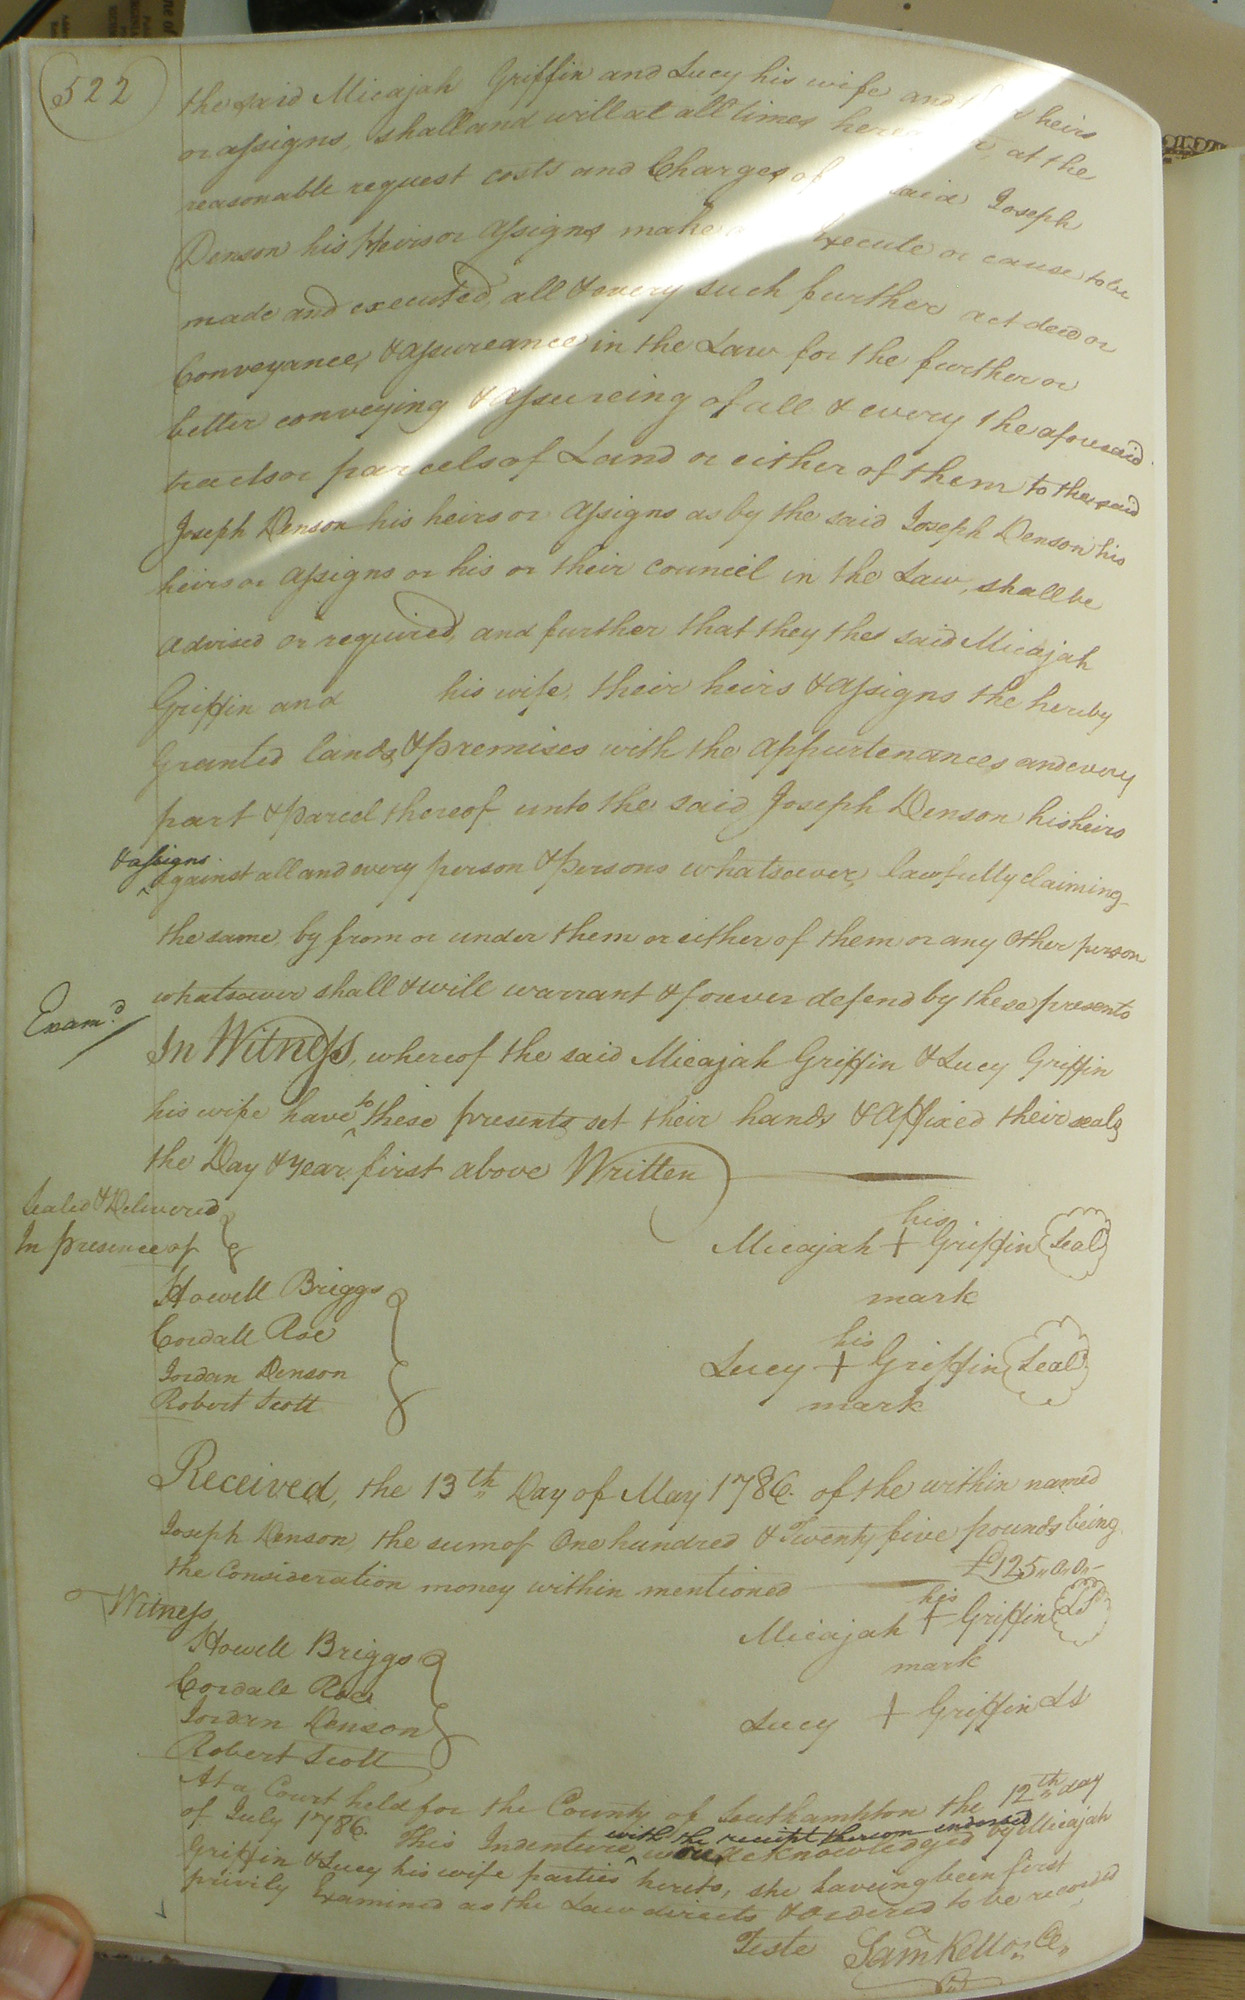 522
the said Micajah Griffin and Lucy his wife and heirs
or assigns, shall and will at all times at the
reasonable request costs and Charges of said Joseph
Denson his Heirs or Assigns make Execute or cause to be
made and executed, all & every such further act deed or
Conveyance, & assureance in the Law for the further or
better conveying & assureing of all & every the aforesaid
tracts or parcels of Land or either of them to the said
Joseph Denson his heirs or Assigns as by the said Joseph Denson his
heirs or Assigns or his or their council in the Law, shall be
advised or required, and further that they the said Micajah
Griffin and his wife, their heirs & assigns the hereby
Granted lands, & premises with the Appurtenances and every
part & parcel thereof unto the said Joseph Denson his heirs
& assigns
^ against all and every person & persons whatsoever, lawfully claiming
the same, by from or under them or either of them or any Other person
whatsoever shall & will warrant & forever defend by these presents
Exam.d
In Witness, whereof the said Micajah Griffin & Lucy Griffin
his wife have ^to these presents set their hands & Affixed their seals
the Day & Year first above Written
Sealed & Delivered
In presence of
his
Micajah + Griffin Seal
mark
Howell Briggs
Cordall Roe
Jordan Denson
Robert Scott
his
Lucy + Griffin Seal
mark
Received, the 13th Day of May 1786. of the within named
Joseph Denson, the sum of One hundred & Twenty five pounds being
the Consideration money within mentioned £125"0"0"
Witness
his
Micajah + Griffin LS
mark
Howell Briggs
Cordale Roe
Jordan Denson
Robert Scott
Lucy + Griffin LS
At a Court held for the County of Southampton the 12th day
of July 1786. This Indenture ^with the receipt thereon endorsed was Acknowledged by Micajah
Griffin & Lucy his wife parties hereto, she haveing been first
privily Examined as the Law directs & Ordered to be recorded
Teste Sam Kello Cl